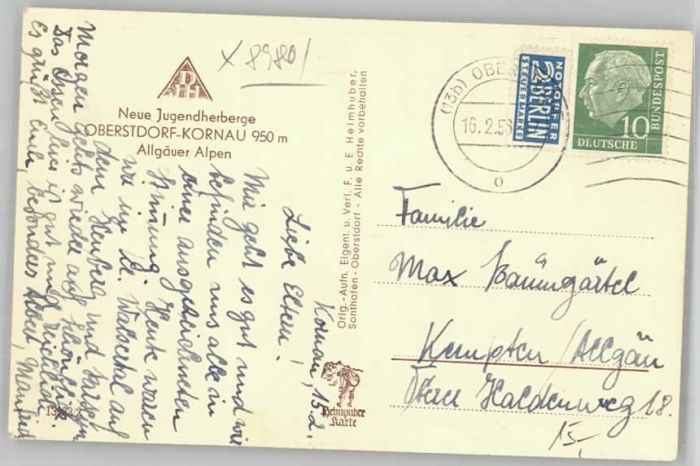 x 8980/
Neue Jugendherberge
OBERSTDORF-KORNAU 950 m
Allgäuer Alpen
Kornau, 13.2.
Liebe Eltern!
Mir geht es gut und wir
befinden uns alle in
einer ausgezeichneten
Stimmung. Heute waren
wir im Kl. Walsertal auf
dem und
Morgen gehts wieder auf
Das Essen hier ist gut und reichlich.
Es grüßt Euch besonders Albert, Manfred
Orig.-Aufn. Eigent. u. Verl. F. u. E. Heimhuber,
Sonthofen-Oberstdorf - Alle Rechte vorbehalten
Heimhuber
Karte
(13b) OBER
16.2.56
NOTOPFER
2 BERLIN
STEUERMARKE
DEUTSCHE
BUNDESPOST
10
Familie
Max Baumgärtel
Kempten/Allgäu
Obere Haldenweg 18.
15,-